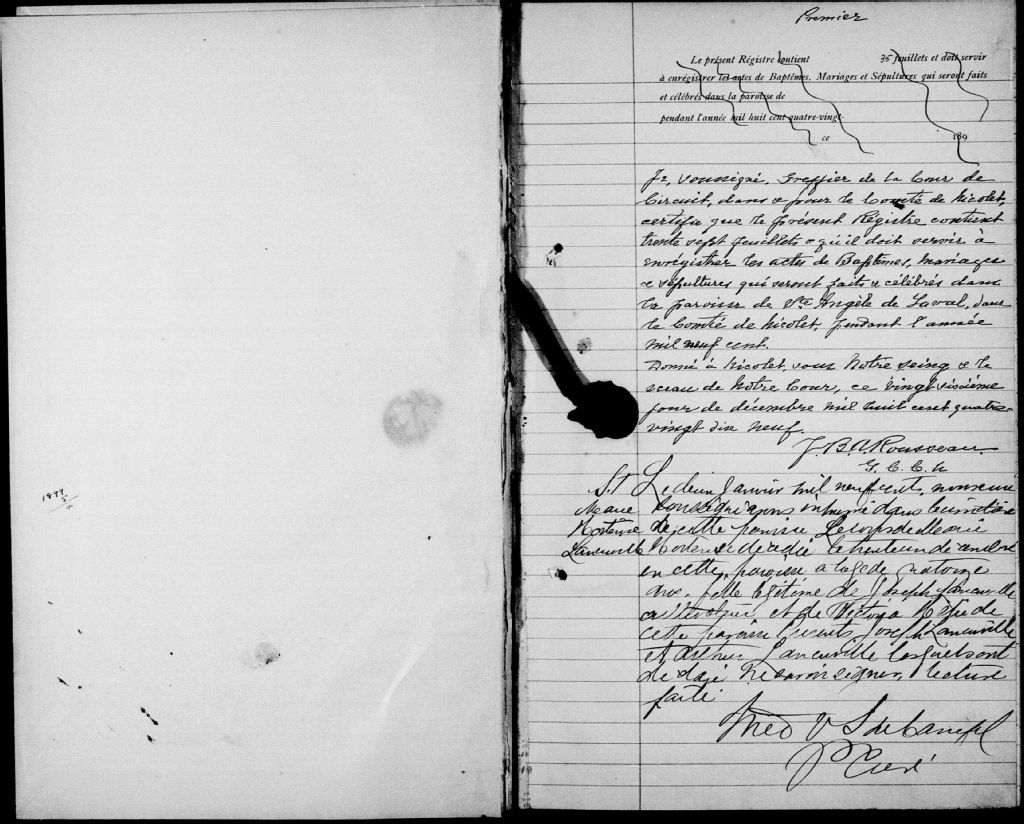 Premier
Le présent Régistre contient 35 feuillets et doit servir
à enrégistrer les actes de Baptêmes, Mariages et Sépultures qui seront faits
et célébrés dans la paroisse de
pendant l'année mil huit cent quatre-vingt-
ce 189
Je, soussigné, Greffier de la Cour de
Circuit, dans & pour le Comté de Nicolet,
certifie que le présent Régistre contient
trente sept feuillets & qu'il doit servir à
enrégistrer les actes de Baptêmes, Mariages
& sépultures qui seront faits & célébrés dans
la paroisse de Ste Angèle de Laval, dans
le Comté de Nicolet, pendant l'année
mil neuf cent.
Donné à Nicolet, sous Notre seing & le
sceau de Notre Cour, ce vingt sixième
jour de décembre mil huit cent quatre-
vingt dix neuf.
J. B. A. Rousseau
G. C. C. N
1899
S. 1
Marie
Hortense
Laneuville
Le deux Janvier mil neuf cent, nous curé
soussigné avons inhumé dans le cimetière
de cette paroisse Le corps de Marie
Hortense décédée le trente un décembre
en cette paroisse a l'age de quatorze
ans, fille légitime de Joseph Laneuville
et de Victoria de
cette paroisse Présents Joseph Laneuville
et Laneuville lesquels ont
déclaré ne savoir signer, lecture
faite
Ptre Curé